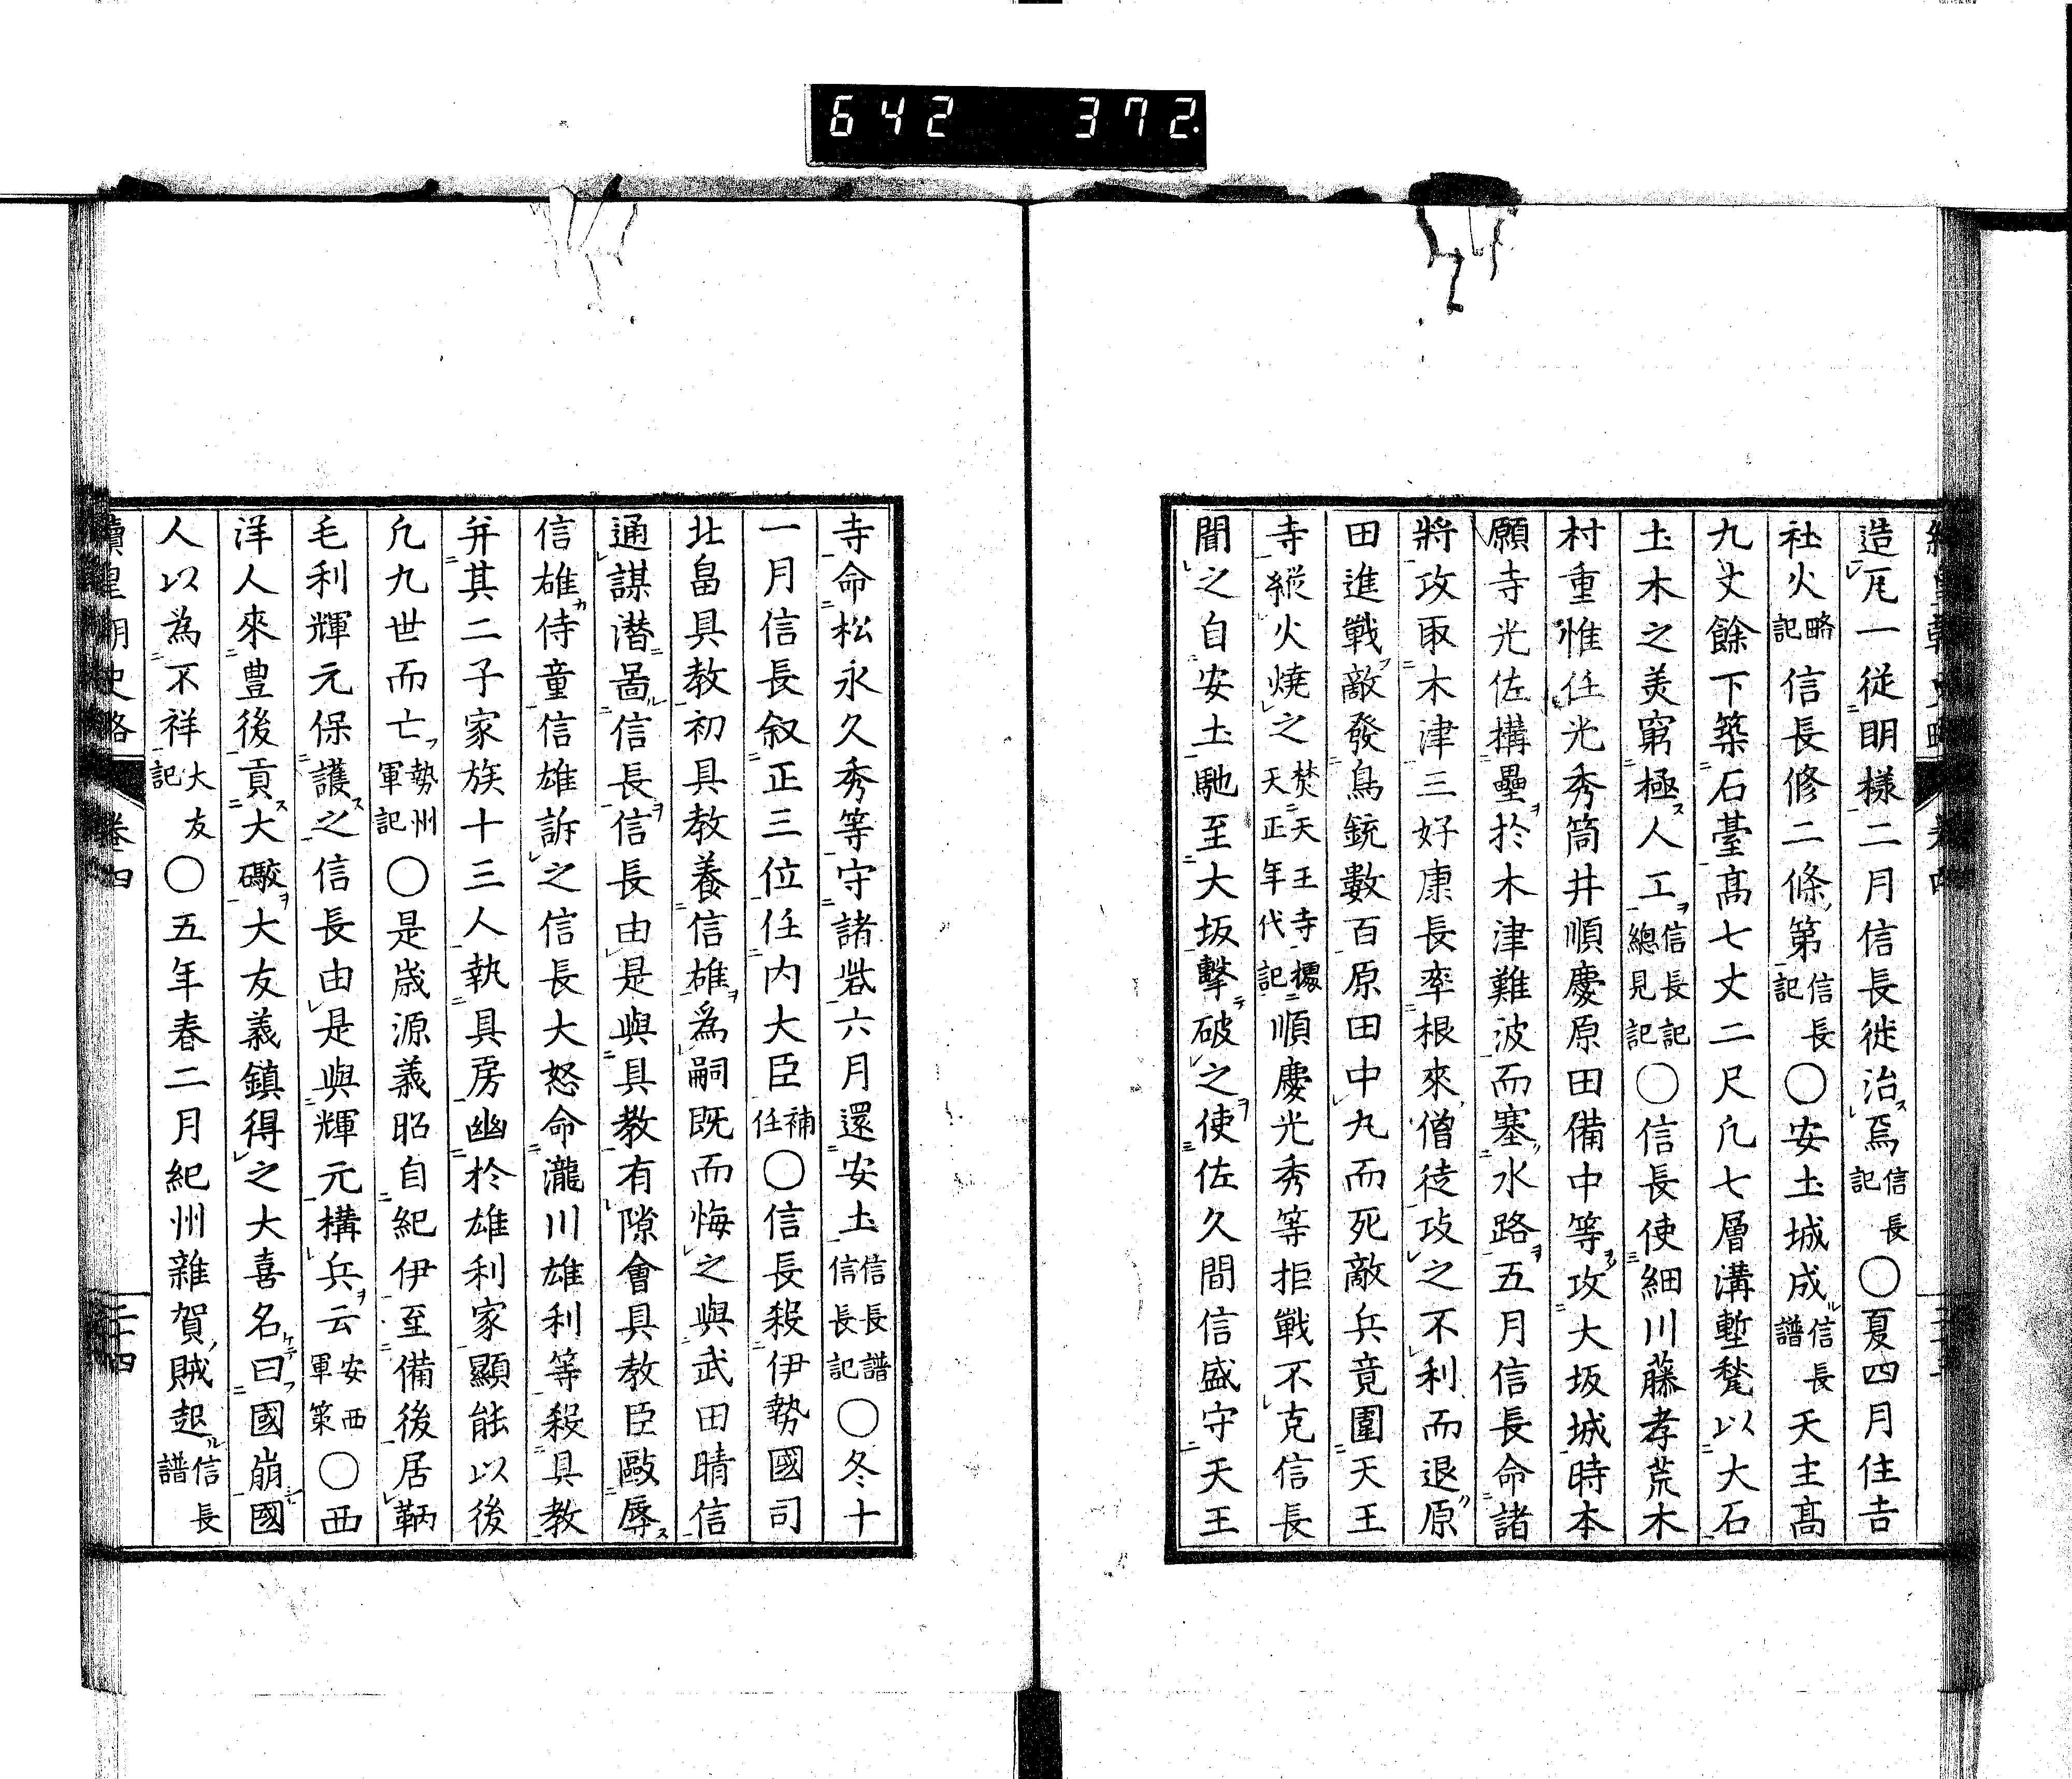 642 372.
造瓦一従明様二月信長徙治焉信長記〇夏四月住吉
社火略記信長修二條第信長記〇安土城成信長譜天主髙
九丈餘下築石䑓髙七丈二尺凡七層溝塹甃以大石
土木之美窮極人工信長記總見記〇信長使細川藤孝荒木
村重惟任光秀筒井順慶原田備中等攻大坂城時本
願寺光佐構壘於木津難波而塞水路五月信長命諸
將攻取木津三好康長率根來僧徒攻之不利而退原
田進戰敵發鳥銃數百原田中丸而死敵兵竟圍天王
寺縱火燒之焚天王寺據天正年代記順慶光秀等拒戰不克信長
聞之自安土馳至大坂擊破之使佐久間信盛守天王
寺命松永久秀等守諸砦六月還安土信長譜信長記〇冬十
一月信長叙正三位任内大臣補任〇信長殺伊勢國司
北畠具教初具教養信雄爲嗣既而悔之與武田晴信
通謀潜啚信長信長由是與具教有隙會具教臣毆辱
信雄侍童信雄訴之信長大怒命瀧川雄利等殺具教
并其二子家族十三人執具房幽於雄利家顯能以後
凡九世而亡勢州軍記〇是歳源義昭自紀伊至備後居鞆
毛利輝元保護之信長由是與輝元構兵云安西軍策〇西
洋人來豊後貢大礮大友義鎮得之大喜名曰國崩國
人以為不祥大友記〇五年春二月紀州雜賀賊起信長譜
續皇朝史略 卷四 二十四